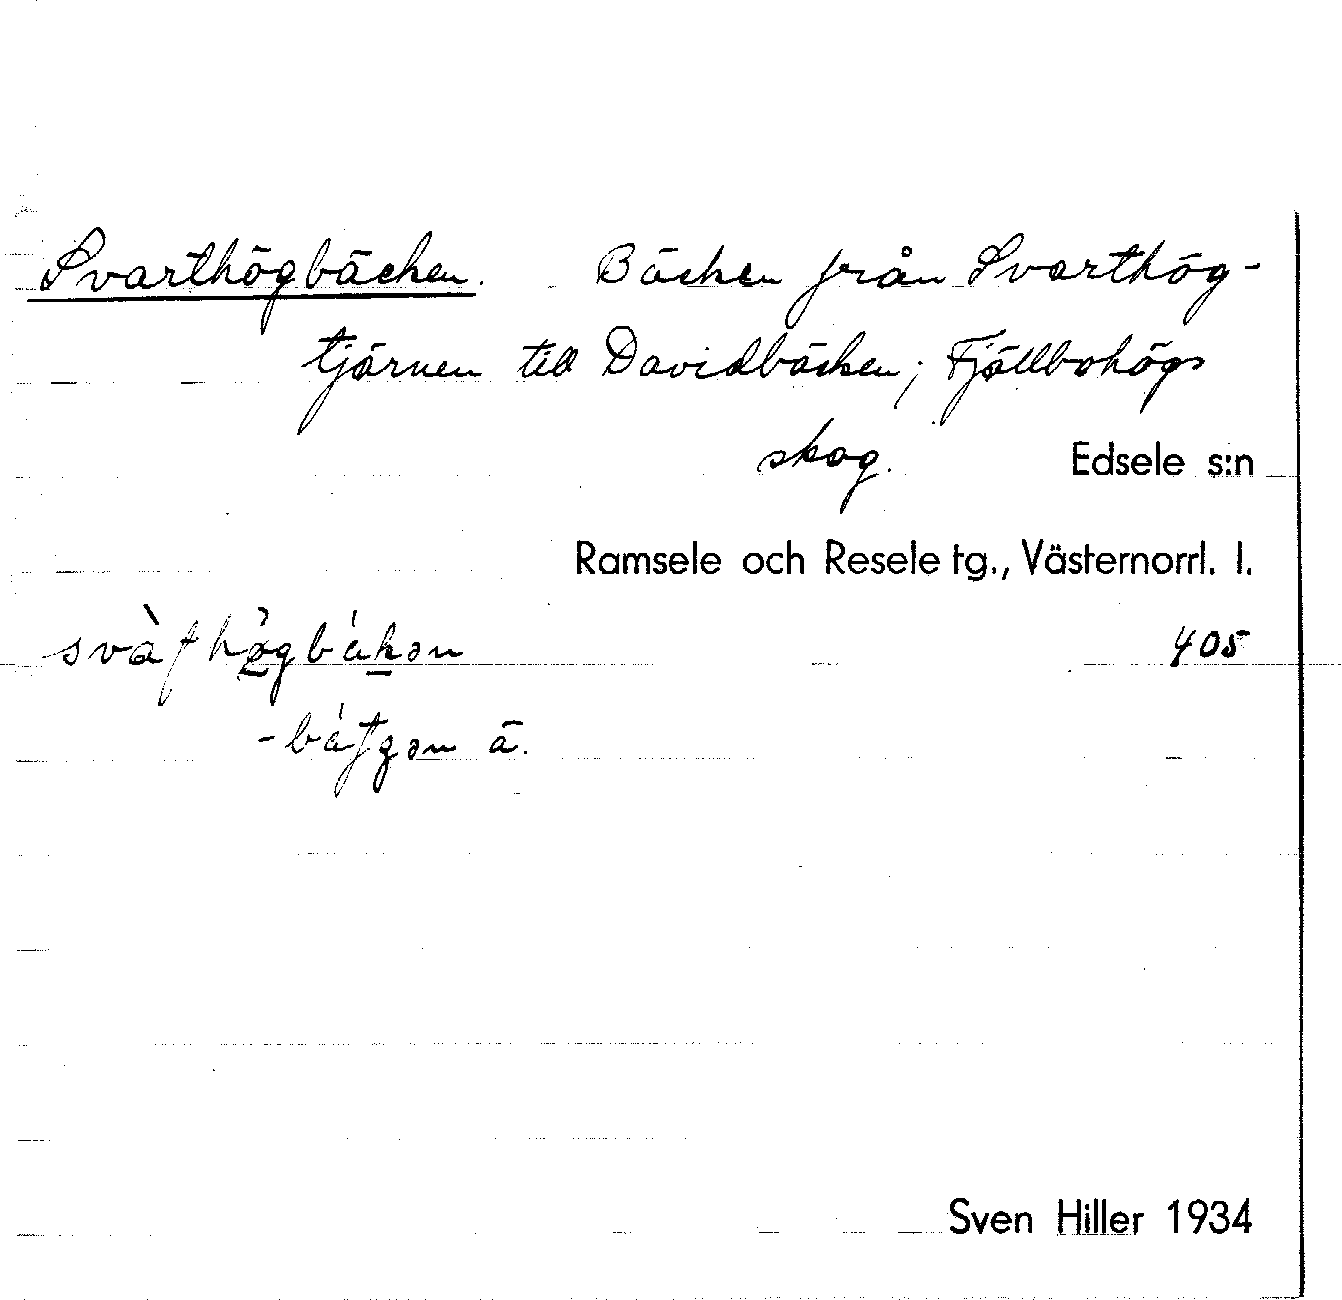 Svarthögbäcken. Bäcken från Svarthög-
tjärnen till Davidbäcken; Fjällbohögs
skog. Edsele s:n
Ramsele och Resele tg., Västernorrl. l.
405
ä.
Sven Hiller 1934